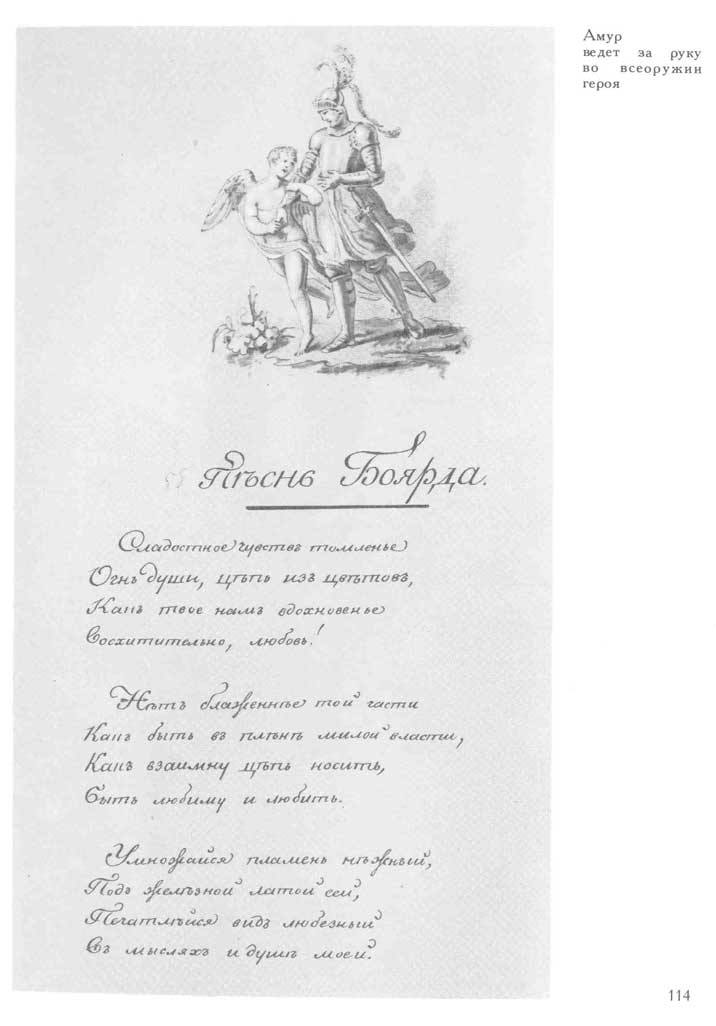 Амур
ведет за руку
во всеоружии
героя
Пѣснь Боярда.
Сладостное чувствъ томленье
Огнь души, цѣпь изъ цвѣтовъ,
Какъ твое намъ вдохновенье
Восхитительно, любовь!
Нѣтъ блаженнѣе той части
Какъ быть въ плѣнѣ милой власти,
Какъ взаимну цѣпь носить,
Быть любиму и любить.
Умножайся пламень нѣжный,
Подъ желѣзной латой сей,
Печатлѣйся видъ любезный
Въ мысляхъ и душѣ моей.
114